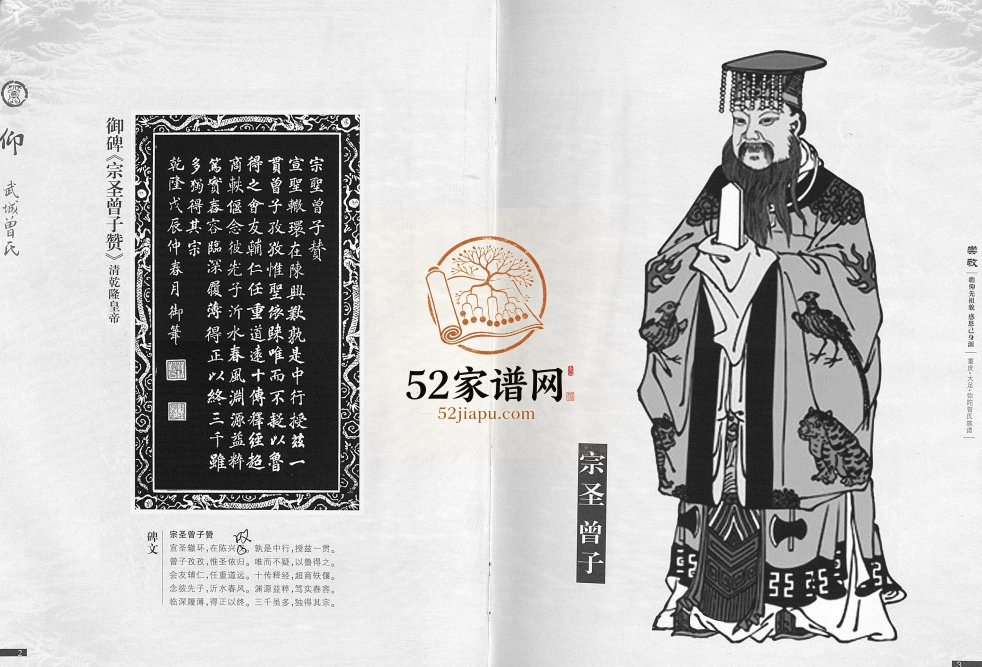 仰
武城曾氏
御碑《宗圣曾子赞》 清乾隆皇帝
宗聖曾子贊
宣聖轍環在陳興歎孰是中行授兹一
貫曾子孜孜惟聖依歸唯而不疑以魯
得之會友輔仁任重道遠十傳釋經超
商軼偃念彼先子沂水春風淵源益粹
篤實春容臨深履薄得正以終三千雖
多獨得其宗
乾隆戊辰仲春月御筆
碑文
宗圣曾子赞
宣圣辙环,在陈兴。孰是中行,授兹一贯。
曾子孜孜,惟圣依归。唯而不疑,以鲁得之。
会友辅仁,任重道远。十传释经,超商轶偃。
念彼先子,沂水春风。渊源益粹,笃实春容。
临深履薄,得正以终。三千虽多,独得其宗。
2
52家谱网
52jiapu.com
宗圣曾子
崇敬
瞻仰先祖貌 感悠己身源
重庆·大足·弥陀曾氏族谱
3